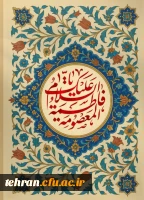 السلام علیک یا
فاطمة المعصومة
tehran.cfu.ac.ir